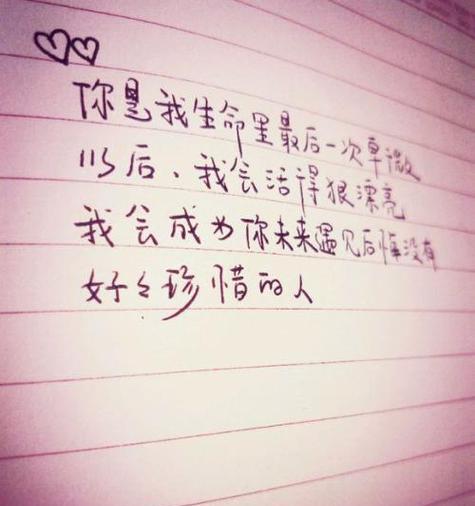 你是我生命里最后一次卑微
以后、我会活得狠漂亮
我会成为你未来遇见后悔没有
好々珍惜的人